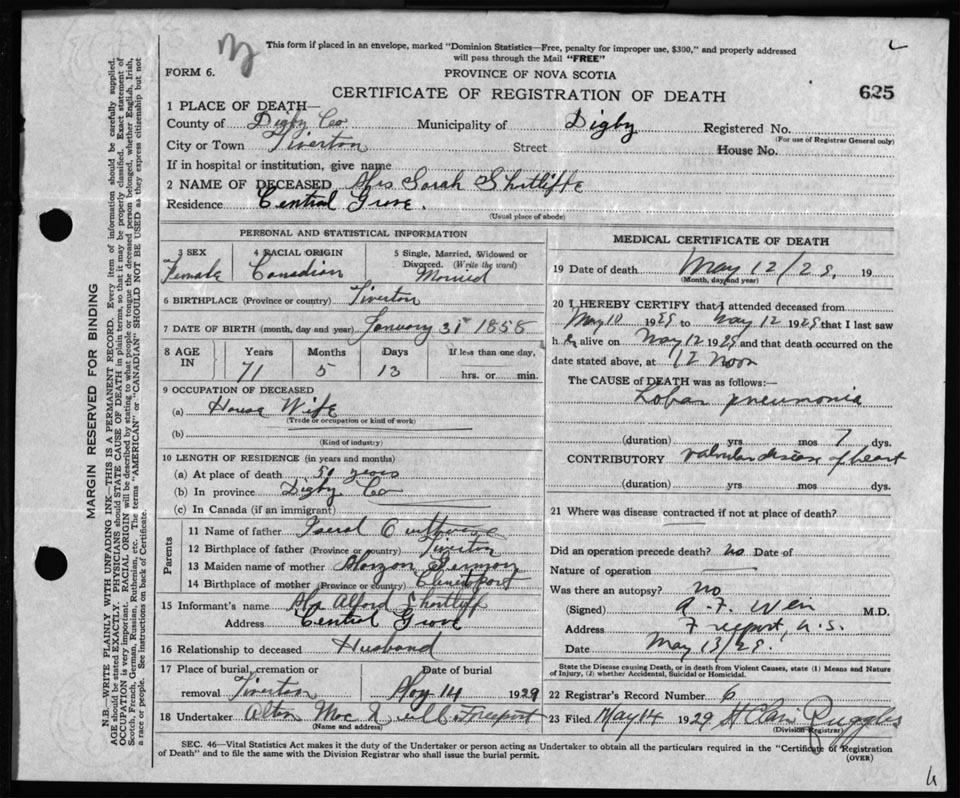 This form if placed in an envelope, marked "Dominion Statistics—Free, penalty for improper use, $300," and properly addressed
will pass through the Mail "FREE"
FORM 6.
PROVINCE OF NOVA SCOTIA
CERTIFICATE OF REGISTRATION OF DEATH
625
1 PLACE OF DEATH—
County of Digby Co Municipality of Digby Registered No.
(For use of Registrar General only)
City or Town Tiverton Street House No.
If in hospital or institution, give name
2 NAME OF DECEASED Mrs Sarah Shortliffe
Residence Central Grove.
(Usual place of abode)
PERSONAL AND STATISTICAL INFORMATION
3 SEX Female
4 RACIAL ORIGIN Canadian
5 Single, Married, Widowed or Divorced. (Write the word) Married
6 BIRTHPLACE (Province or country) Tiverton
7 DATE OF BIRTH (month, day and year) January 31st 1858
8 AGE IN Years Months Days If less than one day,
71 5 13 hrs. or min.
9 OCCUPATION OF DECEASED
(a) House Wife
(Trade or occupation or kind of work)
(b)
(Kind of industry)
10 LENGTH OF RESIDENCE (in years and months)
(a) At place of death 50 years
(b) In province Digby Co
(c) In Canada (if an immigrant)
Parents
11 Name of father Isaral Outhouse
12 Birthplace of father (Province or country) Tiverton
13 Maiden name of mother
14 Birthplace of mother (Province or country)
15 Informant's name Alford Shortliff
Address Central Grove
16 Relationship to deceased Husband
17 Place of burial, cremation or removal Tiverton
Date of burial May 14 1929
18 Undertaker Alton Freeport
(Name and address)
MEDICAL CERTIFICATE OF DEATH
19 Date of death May 12/29, 19
(Month, day and year)
20 I HEREBY CERTIFY that I attended deceased from
May 10 1929 to May 12 1929 that I last saw
h er alive on May 12 1929 and that death occurred on the
date stated above, at 12 noon
The CAUSE of DEATH was as follows:—
Lobar pneumonia
(duration) yrs mos 7 dys.
CONTRIBUTORY valvular disease of heart
(duration) yrs. mos. dys.
21 Where was disease contracted if not at place of death?
Did an operation precede death? no Date of
Nature of operation
Was there an autopsy? no
(Signed) A. F. Weir M.D.
Address Freeport, N.S.
Date May 13/29.
State the Disease causing Death, or in death from Violent Causes, state (1) Means and Nature
of Injury, (2) whether Accidental, Suicidal or Homicidal.
22 Registrar's Record Number 6
23 Filed May 14 1929 H Clair Ruggles
(Division Registrar)
SEC. 46—Vital Statistics Act makes it the duty of the Undertaker or person acting as Undertaker to obtain all the particulars required in the "Certificate of Registration
of Death" and to file the same with the Division Registrar who shall issue the burial permit.
(OVER)
MARGIN RESERVED FOR BINDING
N.B.—WRITE PLAINLY WITH UNFADING INK—THIS IS A PERMANENT RECORD. Every item of information should be carefully supplied.
AGE should be stated EXACTLY. PHYSICIANS should STATE CAUSE OF DEATH in plain terms, so that it may be properly classified. Exact statement of
OCCUPATION is very important. RACIAL ORIGIN will be described by stating to what people or tongue the deceased person belonged, whether English, Irish,
Scotch, French, German, Russian, Ruthenian, etc. The terms "AMERICAN" or "CANADIAN" SHOULD NOT BE USED as they express citizenship but not
a race or people. See instructions on back of Certificate.